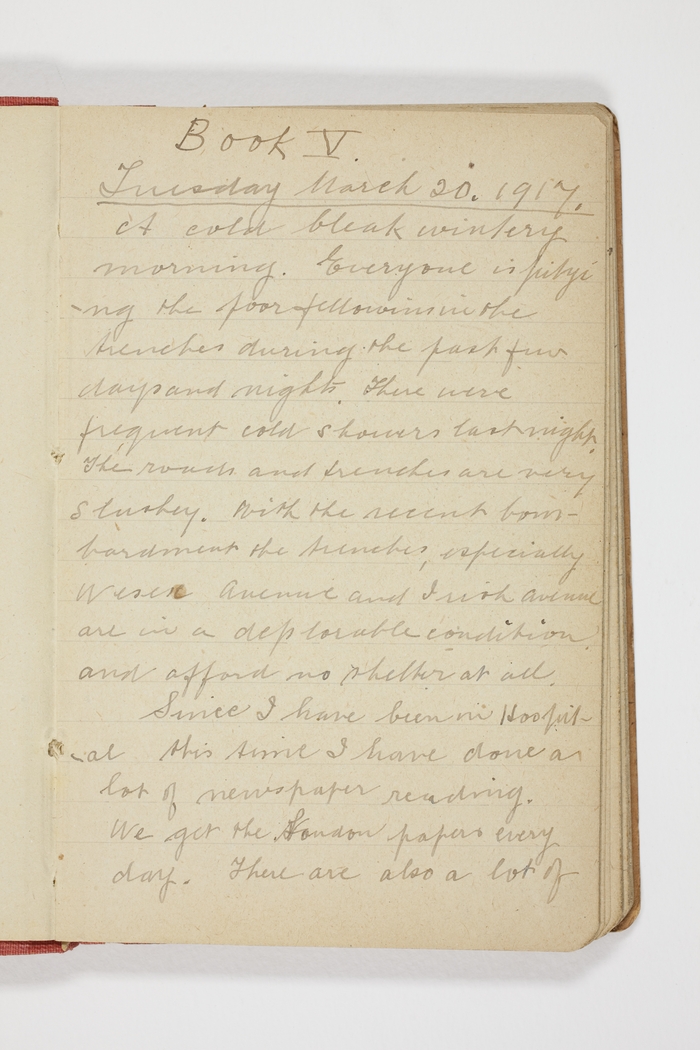 Book V.
Tuesday March 20. 1917.
A cold bleak wintery
morning. Everyone is pityi
-ng the poor fellows in the
trenches during the past few
days and nights. There were
frequent cold showers last night.
The roads and trenches are very
slushey. With the recent bom-
bardment the trenches, especially
Avenue and Irish avenue
are in a deplorable condition
and afford no shelter at all.
Since I have been in Hospit-
-al this time I have done a
lot of newspaper reading.
We get the London papers every
day. There are also a lot of